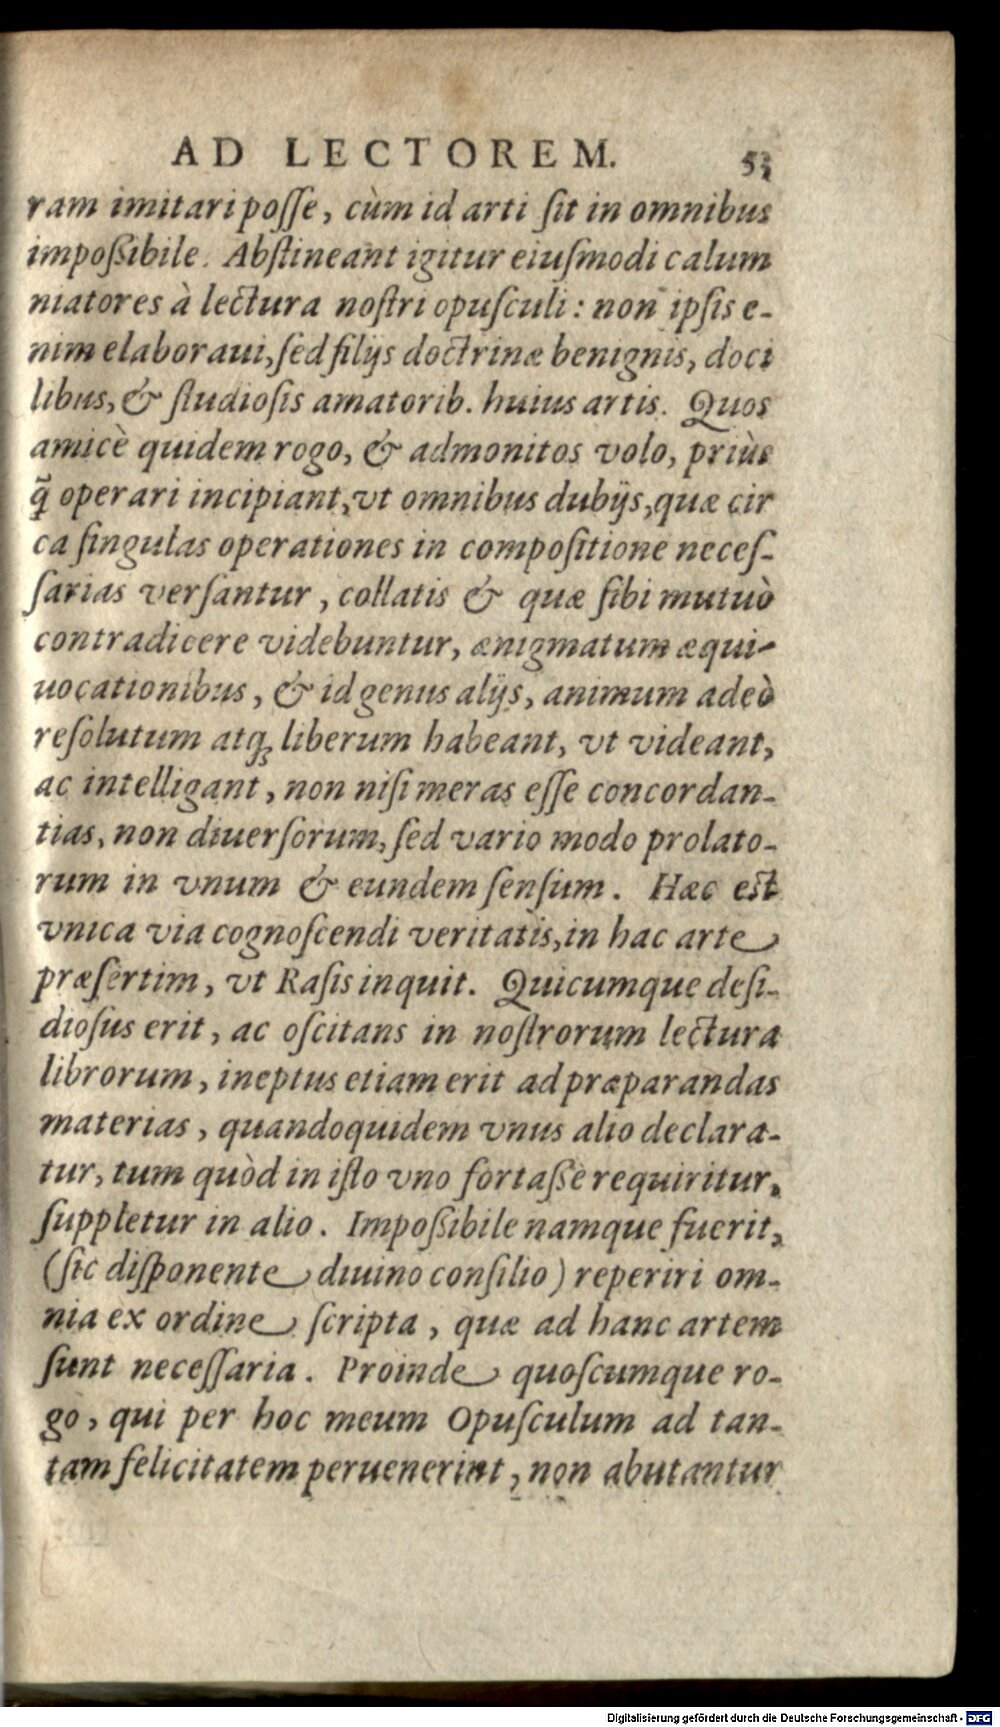 AD LECTOREM. 53
ram imitari posse, cùm id arti sit in omnibus
impoßibile. Abstineant igitur eiusmodi calum
niatores à lectura nostri opusculi: non ipsis e-
nim elaboraui, sed filijs doctrinæ benignis, doci
libus, & studiosis amatorib. huius artis. Quos
amicè quidem rogo, & admonitos volo, priùs
q̃ operari incipiant, vt omnibus dubijs, quæ cir
ca singulas operationes in compositione neces-
sarias versantur, collatis & quæ sibi mutuò
contradicere videbuntur, ænigmatum æqui-
uocationibus, & id genus alijs, animum adeò
resolutum atq; liberum habeant, vt videant,
ac intelligant, non nisi meras esse concordan-
tias, non diuersorum, sed vario modo prolato-
rum in vnum & eundem sensum. Hæc est
vnica via cognoscendi veritatis, in hac arte
præsertim, vt Rasis inquit. Quicumque desi-
diosus erit, ac oscitans in nostrorum lectura
librorum, ineptus etiam erit ad præparandas
materias, quandoquidem vnus alio declara-
tur, tum quòd in isto vno fortaßè requiritur,
suppletur in alio. Impoßibile namque fuerit,
(sic disponente diuino consilio) reperiri om-
nia ex ordine scripta, quæ ad hanc artem
sunt necessaria. Proinde quoscumque ro-
go, qui per hoc meum Opusculum ad tan-
tam felicitatem peruenerint, non abutantur
Digitalisierung gefördert durch die Deutsche Forschungsgemeinschaft - DFG